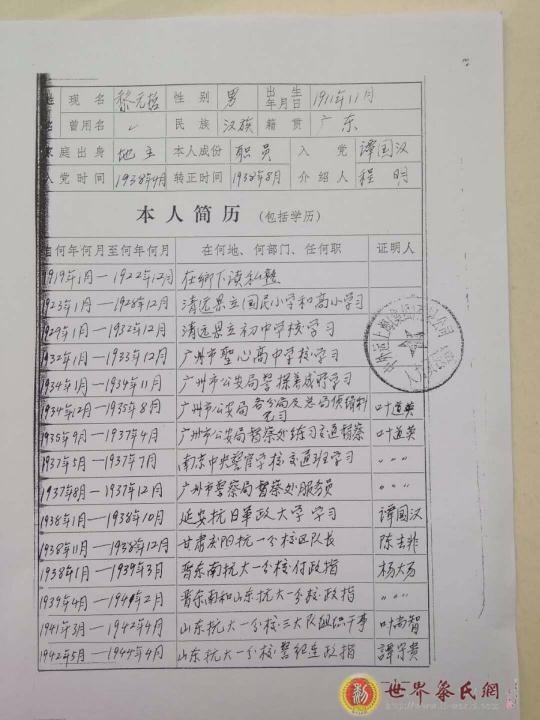 姓 现名 黎元哲 性别 男 出生年月日 1911年11月
名 曾用名 民族 汉族 籍贯 广东
家庭出身 地主 本人成份 职员 入党 谭国汉
入党时间 1938年4月 转正时间 1938年8月 介绍人 程明
本人简历 (包括学历)
自何年何月至何年何月 在何地、何部门、任何职 证明人
1919年1月—1922年12月 在乡下读私塾
1923年1月—1928年12月 清远县立国民小学和高小学习
1929年1月—1932年12月 清远县立初中学校学习
1932年1月—1933年12月 广州市圣心高中学校学习
1934年1月—1934年11月 广州市公安局警探养成所学习
1934年12月—1935年8月 广州市公安局各分局及总局侦缉料见习 叶道英
1935年9月—1937年4月 广州市公安局督察处练习交通督察 叶道英
1937年5月—1937年7月 南京中央警官学校交通班学习 〃〃〃
1937年8月—1937年12月 广州市警察局督察处服务员 〃〃〃
1938年1月—1938年10月 延安抗日军政大学学习 谭国汉
1938年11月—1938年12月 甘肃庆阳抗一分校区队长 陈去非
1938年1月—1939年3月 晋东南抗大一分校付政指 杨大易
1939年4月—1941年2月 晋东南和山东抗大一分校政指 〃〃〃
1941年3月—1942年4月 山东抗大一分校三大队组织干事 叶尚智
1942年5月—1944年4月 山东抗大一分校警纪连政指 谭守贵
世界黎氏網